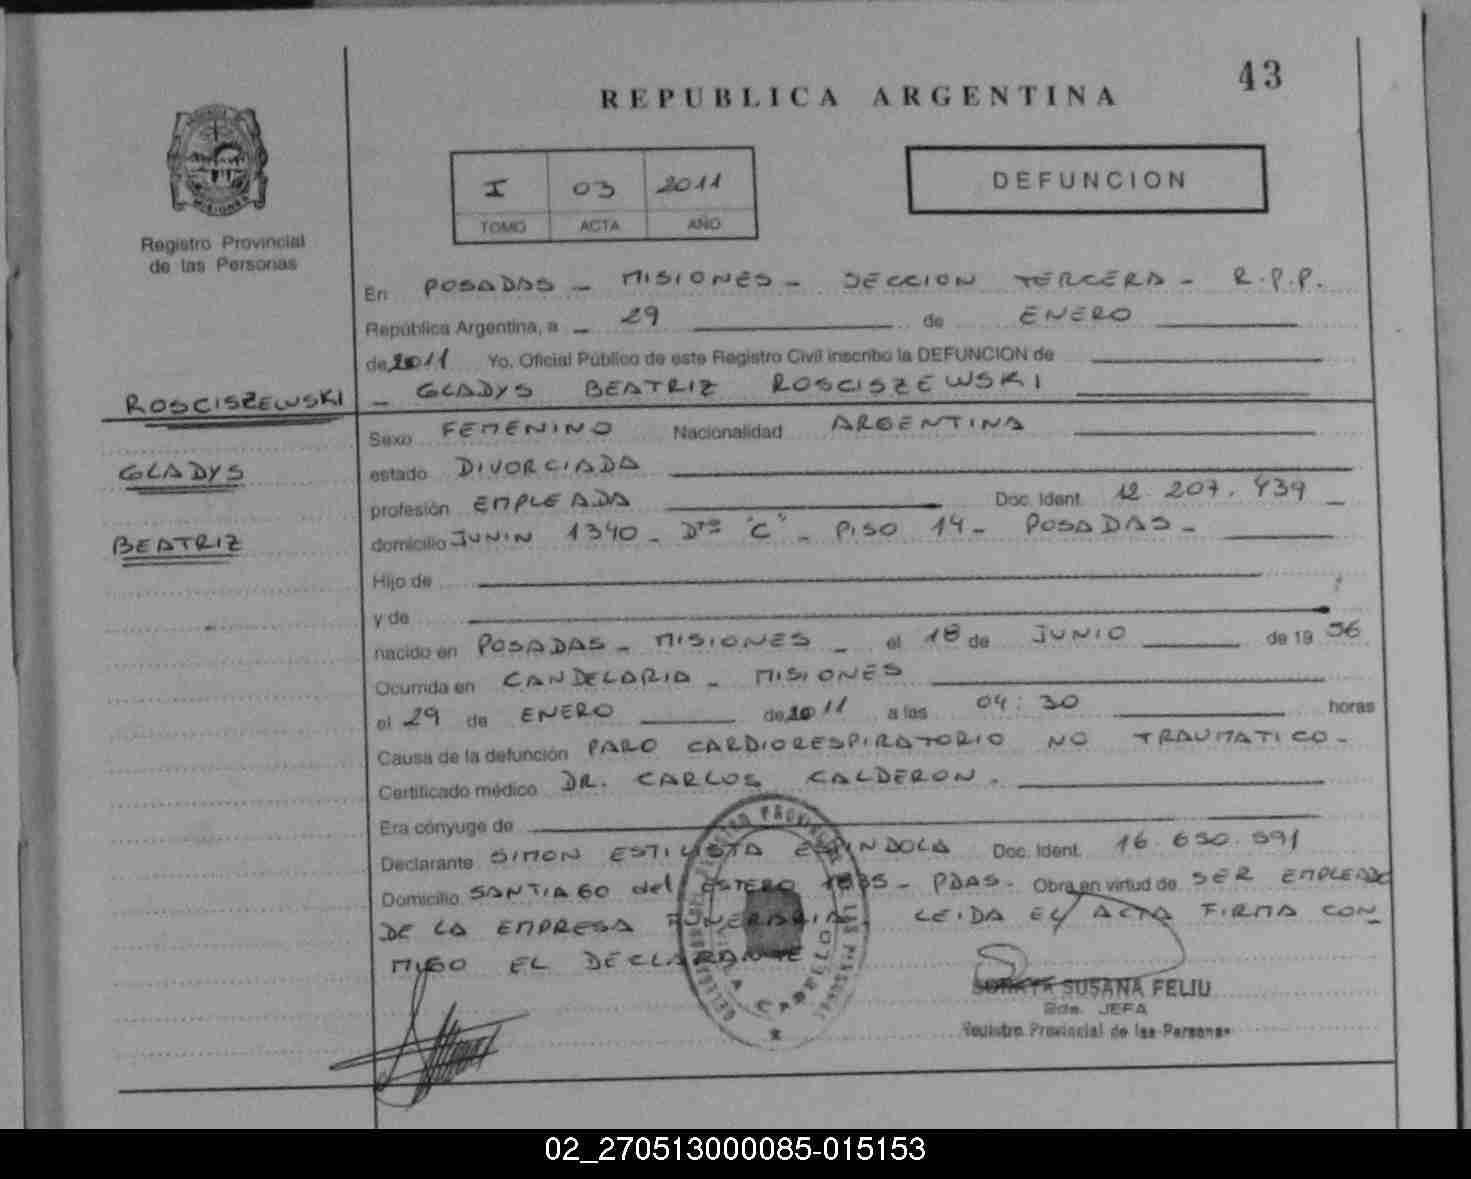 43
REPUBLICA ARGENTINA
MISIONES
Registro Provincial
de las Personas
I 03 2011
TOMO ACTA AÑO
DEFUNCION
En POSADAS - MISIONES - SECCION TERCERA - R.P.P.
República Argentina, a - 29 de ENERO
de 2011 Yo, Oficial Público de este Registro Civil inscribo la DEFUNCION de
- GLADYS BEATRIZ ROSCISZEWSKI
ROSCISZEWSKI
GLADYS
BEATRIZ
Sexo FEMENINO Nacionalidad ARGENTINA
estado DIVORCIADA
profesión EMPLEADA Doc. Ident. 12.207.439 -
domicilio JUNIN 1340 - Dto "C" - PISO 14 - POSADAS -
Hijo de
y de
nacido en POSADAS - MISIONES - el 18 de JUNIO de 19 56
Ocurrida en CANDELARIA - MISIONES
el 29 de ENERO de 2011 a las 04:30 horas
Causa de la defunción PARO CARDIORESPIRATORIO NO TRAUMATICO -
Certificado médico DR. CARLOS CALDERON.
Era cónyuge de
Declarante SIMON ESPINDOLA Doc. Ident. 16.650.591
Domicilio SANTIAGO del ESTERO - PDAS. Obra en virtud de SER EMPLEADO
DE LA EMPRESA FUNERARIA. LEIDA EL ACTA FIRMA CON
MIGO EL DECLARANTE
SUSANA FELIU
JEFA
Registro Provincial de las Personas
02_270513000085-015153